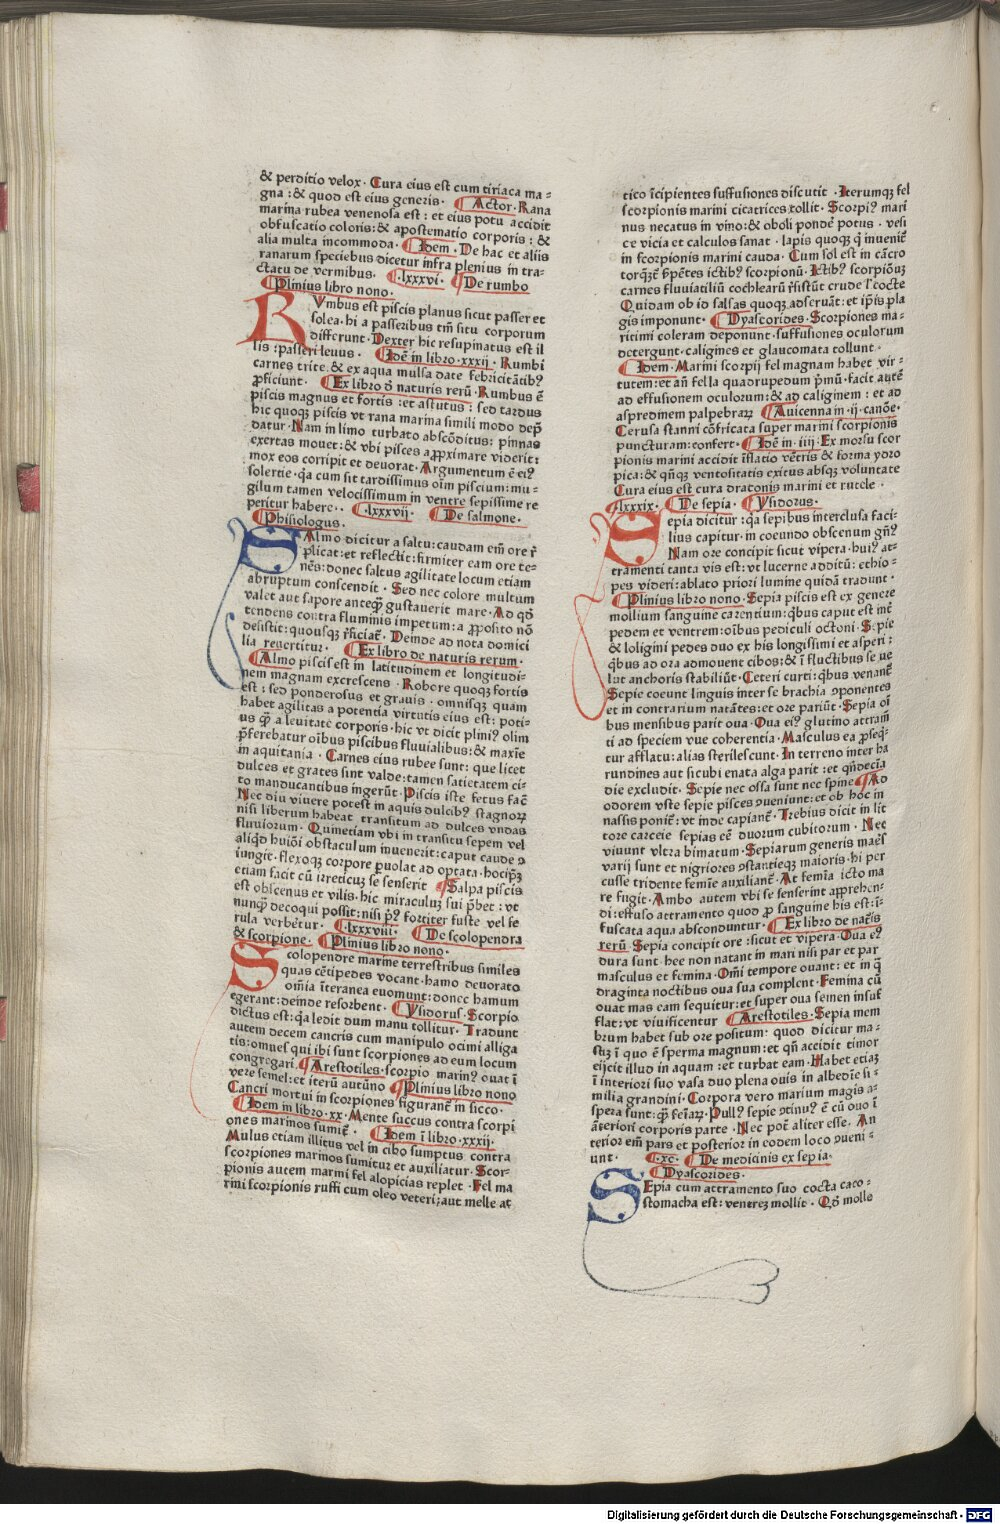 & perditio velox · Cura eius est cum tiriaca ma-
gna : & quod est eius generis · Actor · Rana
marina rubea venenosa est : et eius potu accidit
obfuscatio coloris : & apostematio corporis : &
alia multa incommoda · Idem · De hac et aliis
ranarum speciebus dicetur infra plenius in tra-
ctatu de vermibus · lxxxvi · De rumbo
Plinius libro nono ·
RVmbus est piscis planus sicut passer et
solea · hi a passeribus tm̄ situ corporum
differunt · Dexter hic resupinatus est il
lis : passeri leuus · Idē in libro · xxxij · Rumbi
carnes trite · & ex aqua mulsa date febricitātibꝰ
ꝓficiunt · Ex libro ď naturis rerū · Rumbus ē
piscis magnus et fortis : et astutus : sed tardus
hic quoqꝫ piscis vt rana marina simili modo dep̄
datur · Nam in limo turbato abscōditus : pinnas
exertas mouet : & vbi pisces aꝓꝓximare viderit :
mox eos corripit et deuorat · Argumentum ē eiꝰ
solertie · qa cum sit tardissimus oīm piscium : mu-
gilum tamen velocissimum in ventre sepissime re
peritur habere · · lxxxvij · De salmone ·
Phisiologus ·
SAlmo dicitur a saltu : caudam em̄ ore r̄
plicat : et reflectit : firmiter eam ore te-
nēs : donec saltus agilitate locum etiam
abruptum conscendit · Sed nec colore multum
valet aut sapore anteqꝫ gustauerit mare · Ad qđ
tendens contra fluminis impetum : a ꝓposito nō
desistit : quousqꝫ r̄ficiat᷑ · Deinde ad nota domici
lia reuertitur · Ex libro de naturis rerum ·
Almo piscis est in latitudinem et longitudi-
nem magnam excrescens · Robore quoqꝫ fortis
est : sed ponderosus et grauis · omnisqꝫ quam
habet agilitas a potentia virtutis eius est : poti-
us qꝫ a leuitate corporis · hic vt dicit pliniꝰ olim
p̄ferebatur oībus piscibus fluuialibus : & maxīe
in aquitania · Carnes eius rubee sunt : que licet
dulces et grates sint valde : tamen satietatem ci-
to manducantibus ingerūt · Piscis iste fetus facē
Nec diu viuere potest in aquis dulcibꝰ stagnoꝝ
nisi liberum habeat transitum ad dulces vndas
fluuiorum · Quinetiam vbi in transitu sepem vel
aliqđ huiōi obstaculum inuenerit : caput caude ↄ
iungit · flexoqꝫ corpore ꝑuolat ad optata · hocip̄ꝫ
etiam facit cū irreticuꝫ se senserit Salpa piscis
est obscenus et vilis · hic miraculuꝫ sui p̄bet : vt
nunqꝫ decoqui possit : nisi pꝰ fortiter fuste vel fe
rula verbēꝛtur · lxxxviii · De scolopendra
& scorpione · Plinius libro nono ·
Scolopendre marine terrestribus similes
quas cētipedes vocant · hamo deuorato
om̄ia īteranea euomunt : donec hamum
egerant : deinde resorbent · Ysidorus · Scorpio
dictus est : qa ledit dum manu tollitur · Tradunt
autem decem cancris cum manipulo ocimi alliga
tis : omnes qui ibi sunt scorpiones ad eum locum
congregari · Arestotiles · scorpio marinꝰ ouat ī
vere semel : et iterū autūno Plinius libro nono
Cancri mortui in scorpiones figurant᷑ in sicco ·
Idem in libro · xx · Mente succus contra scorpi
ones marinos sumit᷑ · Idem ī libro · xxxij ·
Mulus etiam illitus vel in cibo sumptus contra
scorpiones marinos sumitur et auxiliatur · Scor-
pionis autem marini fel alopicias replet · Fel ma
rini scorpionis ruffi cum oleo veteri : aut melle at
tico īcipientes suffusiones discutit · Iterumqꝫ fel
scorpionis marini cicatrices tollit · Scorpiꝰ mari
nus necatus in vino : & oboli pondē potus · vesi
ce vicia et calculos sanat · lapis quoqꝫ q̄ inueniē
in scorpionis marini cauda · Cum sol est in cācro
carnes fluuiatiliū cochlearū r̄sistūt crude ł cocte
Quidam ob id salsas quoqꝫ adseruāt : et ip̄is pla
gis imponunt · Dyascorides · Scorpiones ma-
ritimi coleram deponunt · suffusiones oculorum
detergunt · caligines et glaucomata tollunt ·
Idem · Marini scorpij fel magnam habet vir-
tutem : et añ fella quadrupedum p̄mū · facit autē
ad effusionem oculorum : & ad caliginem : et ad
aspredinem palpebraꝝ Auicenna in · ij · canōe ·
Cerusa stanni cōfricata super marini scorpionis
puncturam : confert · Idē in · iiij · Ex morsu scor
pionis marini accidit īflatio vētris & forma ydro
pica : & qn̄qꝫ ventositatis exitus absqꝫ voluntate
Cura eius est cura draconis marini et rutele ·
lxxxix · De sepia · Ysidorus ·
Sepia dicitur : qa sepibus interclusa faci-
lius capitur · in coeundo obscenum gn̄ꝰ
Nam ore concipit sicut vipera · huiꝰ at-
tramenti tanta vis est : vt lucerne additū : ethio-
pes videri : ablato priori lumine quidā tradunt ·
Plinius libro nono · Sepia piscis est ex genere
mollium sanguine carentium : qͥbus caput est int̄
pedem et ventrem : oībus pediculi octoni · Sepie
& loligini pedes duo ex his longissimi et asperi :
qͥbus ad ora admouent cibos : & ī fluctibus se ve
lut anchoris stabiliūt · Ceteri curti : qͥbus venant᷑
Sepie coeunt linguis inter se brachia ↄponentes
et in contrarium natātes : et ore pariūt · Sepia oī
bus mensibus parit oua · Oua eiꝰ glutino attram̄
ti ad speciem vue coherentia · Masculus ea ꝓseqͥ-
tur afflatu : alias sterilescunt · In terreno inter ha
rundines aut sicubi enata alga parit : et qn̄decīa
die excludit · Sepie nec ossa sunt nec spine Ad
odorem vste sepie pisces ꝓueniunt : et ob hoc in
nassis ponit᷑ : vt inde capiant᷑ · Trebius dicit in lit
tore carceie sepias eē duorum cubitorum · Nec
viuunt vltra bimatum · Sepiarum generis maēs
varij sunt et nigriores ↄstantieqꝫ maioris · hi per
cusse tridente femīe auxiliant᷑ · At femīa icto ma
re fugit · Ambo autem vbi se senserint apprehen-
di : effuso attramento quod ꝓ sanguine his est : ī-
fuscata aqua absconduntur · Ex libro de nat̄is
rerū · Sepia concipit ore : sicut et vipera · Oua eꝰ
dura sunt · hec non natant in mari nisi par et par
masculus et femina · Om̄i tempore ouant : et in q̄
draginta noctibus oua sua complent · Femina cū
ouat mas eam sequitur : et super oua semen insuf
flat : vt viuificentur Arestotiles · Sepia mem
brum habet sub ore positum : quod dicitur ma-
stiꝫ ī quo ē sperma magnum : et qn̄ accidit timor
eijcit illud in aquam : et turbat eam · Habet etiaꝫ
ī interiori suo vasa duo plena ouis in albedīe si-
milia grandini · Corpora vero marium magis a-
spera sunt : qꝫ feīaꝝ · Pullꝰ sepie ↄtinuꝰ ē cū ouo ī
āteriori corporis parte · Nec pōt aliter esse · An
terior em̄ pars et posterior in eodem loco ꝓueni-
unt · · xc · De medicinis ex sepia ·
Dyascorides ·
SEpia cum attramento suo cocta caco-
stomacha est : ventreꝫ mollit · Qđ molle
Digitalisierung gefördert durch die Deutsche Forschungsgemeinschaft - DFG